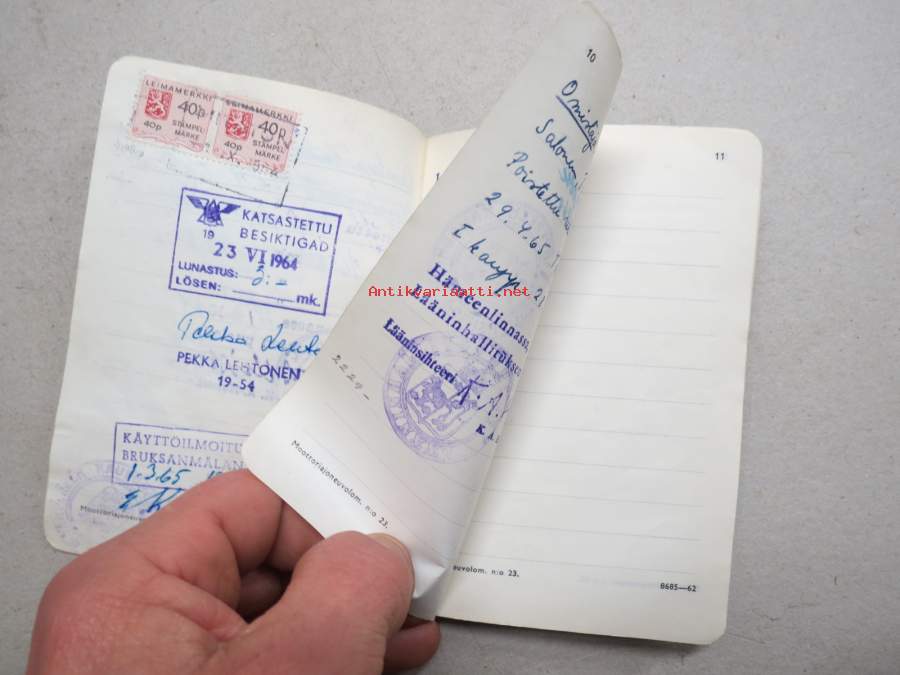 LEIMAMERKKI
40p
40p STÄMPEL MÄRKE
LEIMAMERKKI
40p
40p STÄMPEL MÄRKE
KATSASTETTU
BESIKTIGAD
19
23 VI 1964
LUNASTUS: 5:-
LÖSEN: mk.
Pekka Lehto
PEKKA LEHTONEN
19-54
KÄYTTÖILMOITU
BRUKSANMÄLAN
1.3.65
Moottoriajoneuvo
10
Omistaj
Salonen
Poistettu
29.4.65
I kauppa
Hämeenlinnassa,
Lääninhallitukse
Lääninsihteeri K. A.
2229-
Moottoriajoneuvolom. n:o 23.
11
euvolom. n:o 23.
8685—62
Antikvariaatti.net